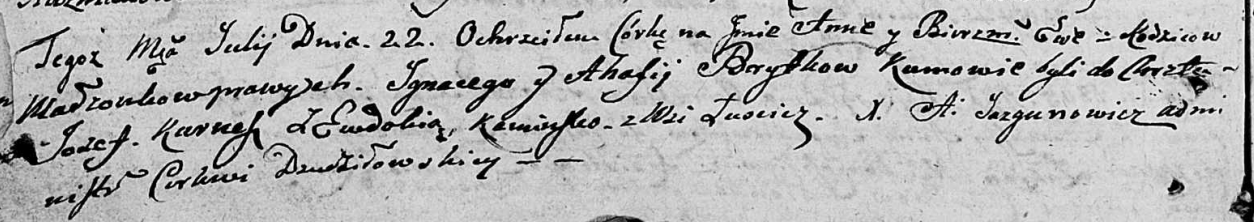 Tegoż Mṣca Julij Dnia. 22. Ochrzciłem Córkę na Jmie Anne y Bierzm. Ewe = Rodzicow
Małżonkow prawych. Jgnacego y Ahafij Boryskow Kumowie byli do Chrztu =
Jozef. Karnes z Ewdokią, Kaminsko. z Wsi Łuocicz. X. A: Jazgunowicz admi
nistr Cerkwi Dzudziłowskiey = =